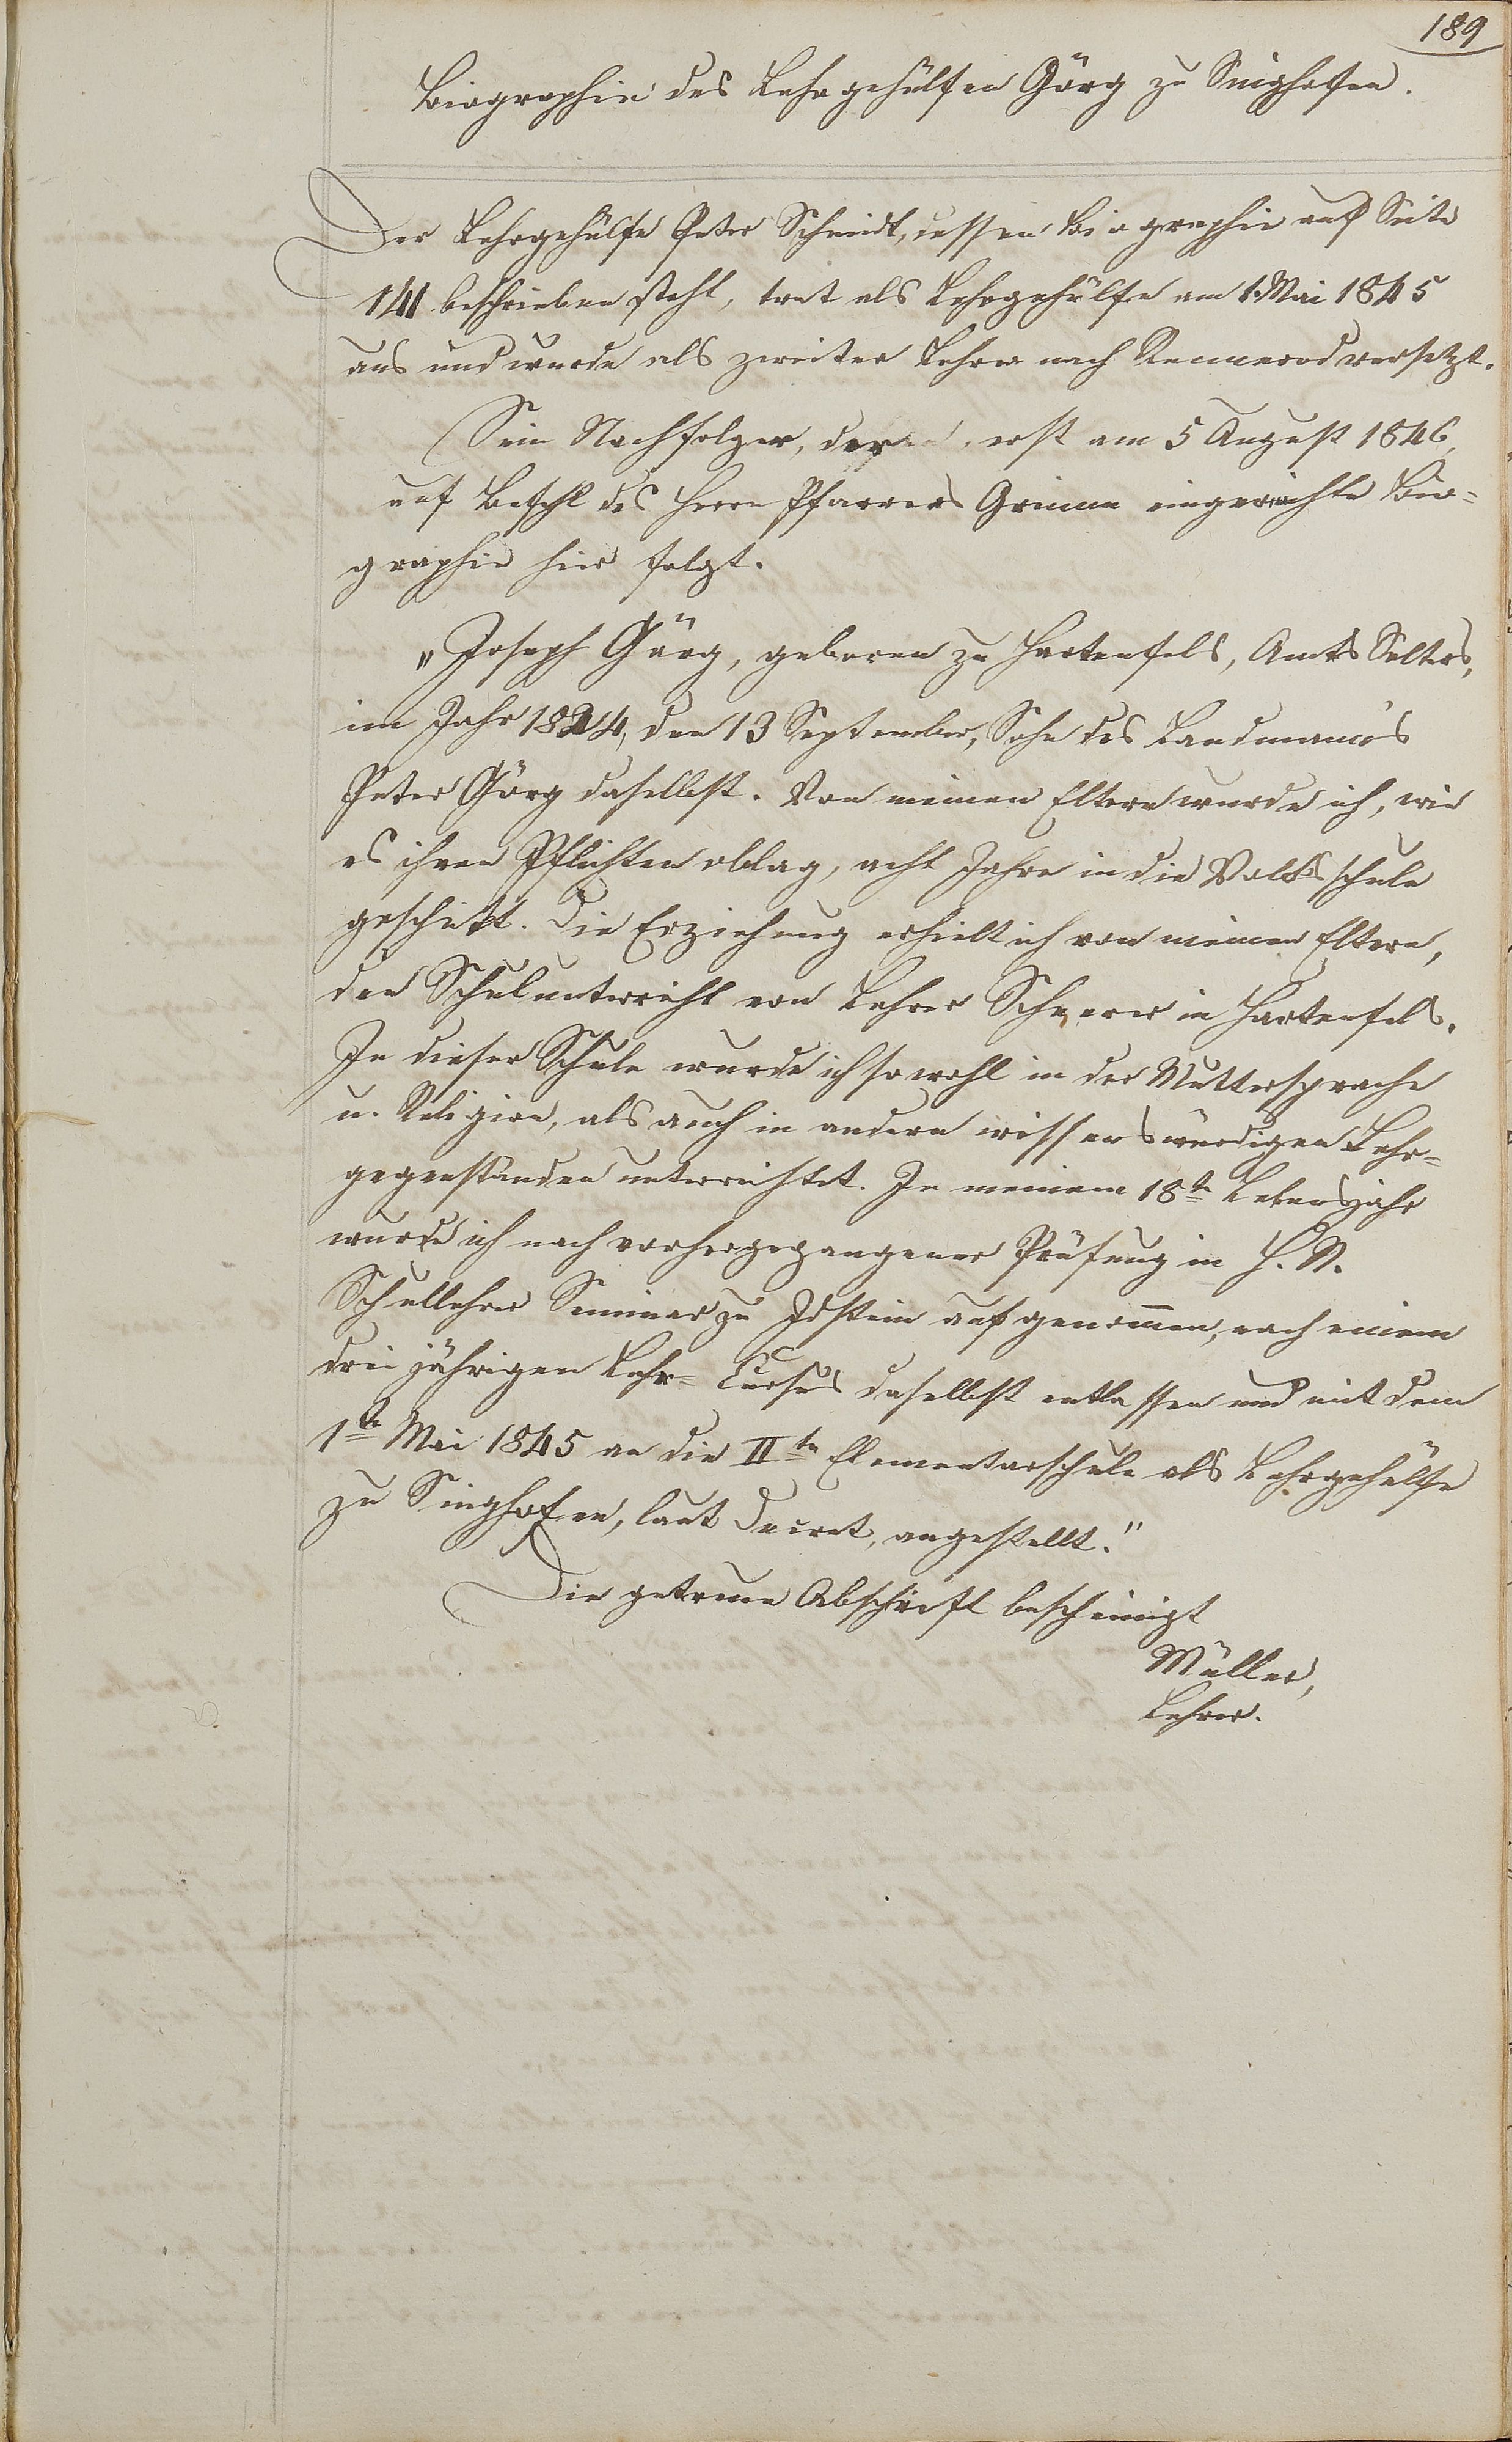 189
Biographie des Lehrgehülfen Görg zu Singhofen.
Der Lehrgehülfe Peter Schmidt, dessen Biographie auf Seite
141 beschrieben steht, trat als Lehrgehülfe am 1. Mai 1845
aus und wurde als zweiter Lehrer nach Rennerod versetzt.
Sein Nachfolger, der erst am 5 August 1846,
auf Befehl des Herrn Pfarrers Grimm eingereichte Bio=
graphie hier folgt.
"Joseph Görg, geboren zu Hartenfels, Amts Selters,
im Jahr 1824, den 13 September, Sohn des Landmann's
Peter Görg daselbst. Von meinen Eltern wurde ich, wie
es ihren Pflichten oblag, acht Jahre in die Volksschule
geschikt. Die Erziehung erhielt ich von meinen Eltern,
den Schulunterricht von Lehrer in Hartenfels.
In dieser Schule wurde ich sowohl in der Muttersprache
u. Religion, als auch in andern wissenswürdigen Lehr=
gegenständen unterrichtet. In meinem 18ten Lebensjahr
wurde ich nach vorhergegangener Prüfung in H. N.
Schullehrer Seminar zu Idstein aufgenommen, nach einem
drei jährigen Lehr= Cursus daselbst entlassen und mit dem
1ten Mai 1845 an die IIte Elementarschule als Lehrgehülfe
zu Singhofen, laut Decret, angestellt."
Die getreue Abschrift bescheinigt
Müller,
Lehrer.